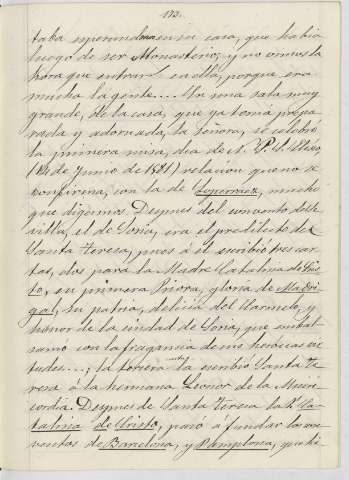 173.
taba esperandonos en su casa, que habia
luego de ser Monasterio; y no vimos la
hora que entrar en ella, porque era
mucha la gente.... En una sala muy
grande, de la casa, que ya tenia prepa
rada y adornada, la Señora, se celebró
la primera misa, dia de N. P. S. Eliseo
(14 de Junio de 1581) relacion que no se
conforma, con la de Loperraez, mucho
que digamos. Despues del convento de
villa, el de Soria, era el predilecto de
Santa Teresa, pues á él escribió tres car
tas, dos para la Madre Catalina de Cris
to, su primera Priora, gloria de Madri
gal, su patria, delicia del Carmelo, y
honor de la ciudad de Soria, que embal
samó con la fragancia de sus heroicas vir
tudes....; la tercera la escribió Santa Te
resa á la hermana Leonor de la Miseri
cordia. Despues de Santa Teresa la V. Ca
talina de Cristo, pasó a fundar los con
ventos de Barcelona, y Pamplona, y